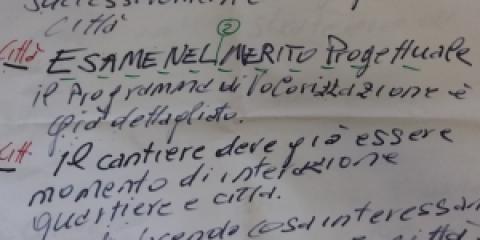 Città
Città ESAME NEL MERITO Progettuale
②
il Programma di
già dettagliato.
Citt. il cantiere deve già essere
momento di interazione
quartiere e città.
cosa interessa